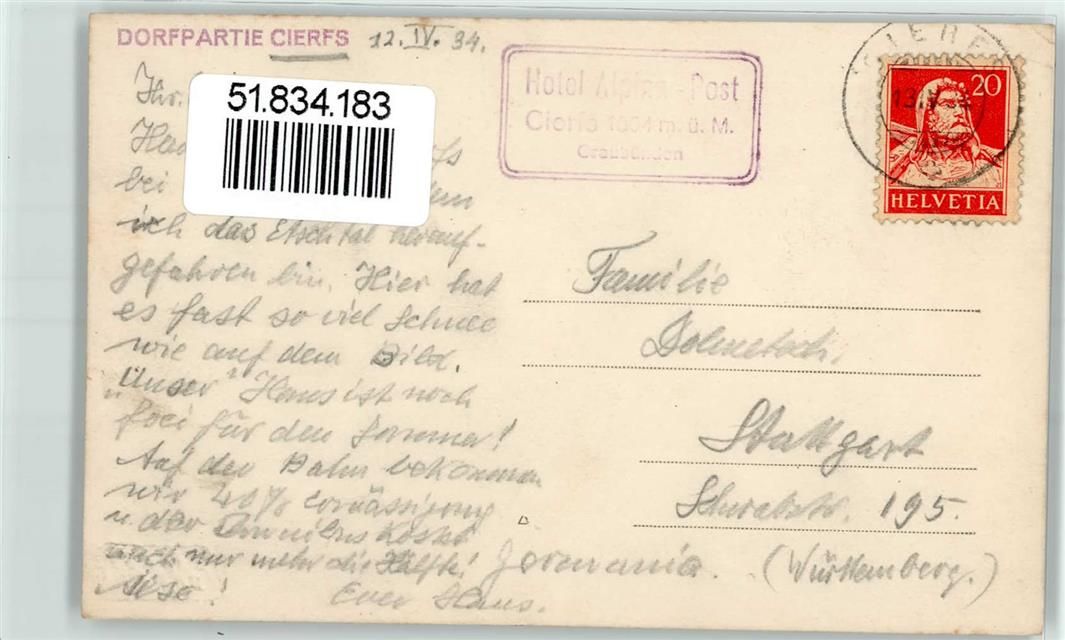 DORFPARTIE CIERFS 12.IV.34.
Hotel Alpina & Post
Cierfs 1664 m. ü. M.
Graubünden
CIERFS
13.IV
20
HELVETIA
51.834.183
Ihr
bei
ich das Etschtal herauf-
gefahren bin. Hier hat
es fast so viel Schnee
wie auf dem Bild.
"Unser" Haus ist noch
frei für den Sommer!
Auf der Bahn bekommen
wir 40% Ermässigung
u. der Omnibus kostet
auch nur mehr die Hälfte!
Also! Euer Hans.
Familie
Dolmetsch.
Stuttgart
Schwabstr. 195.
Germania. (Württemberg.)